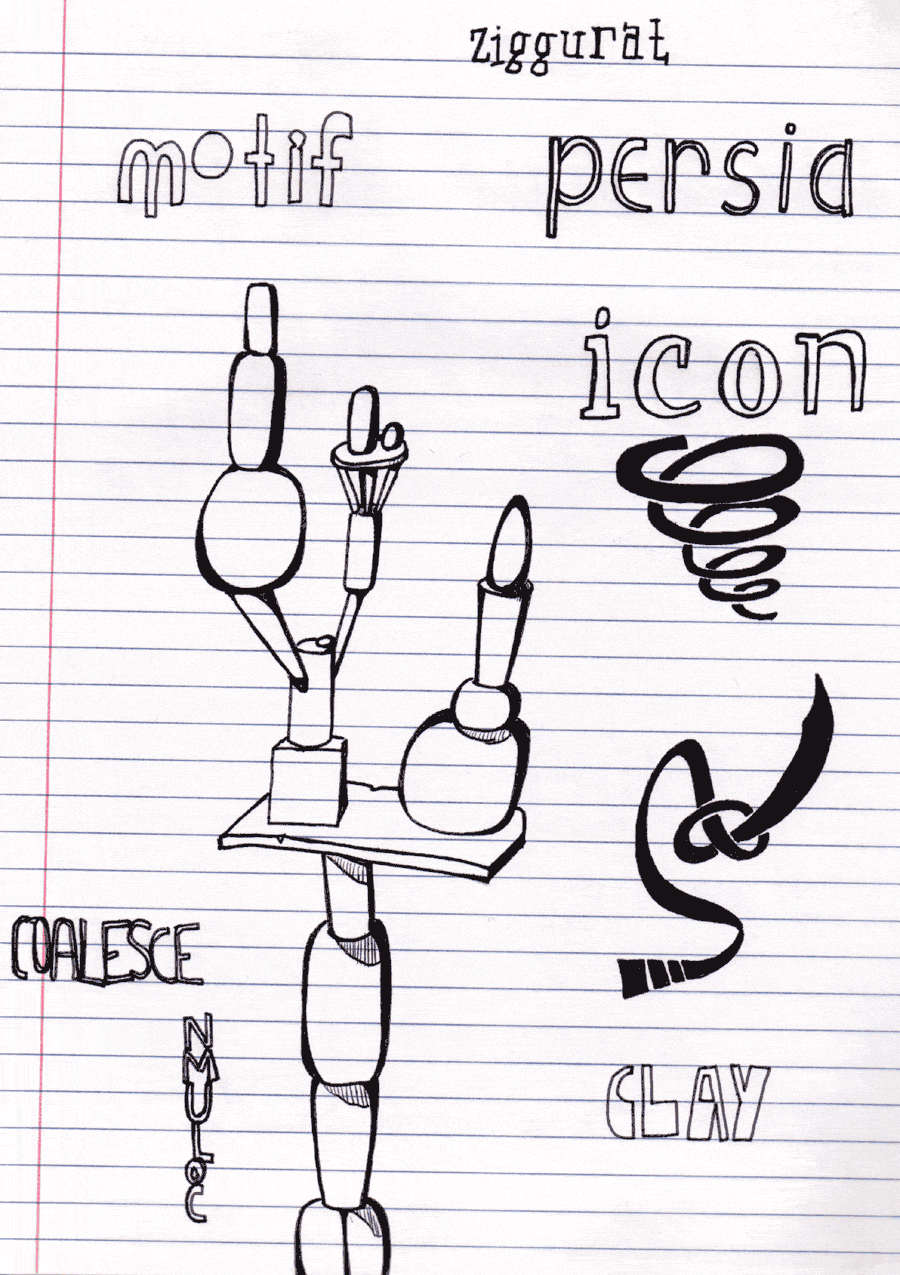 ziggurat
motif
persia
icon
COALESCE
COLUMN
CLAY